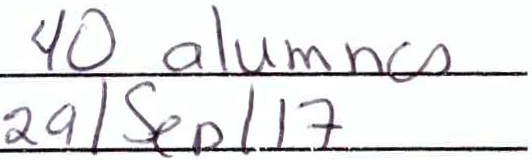 40 alumnos
29/Sep/17